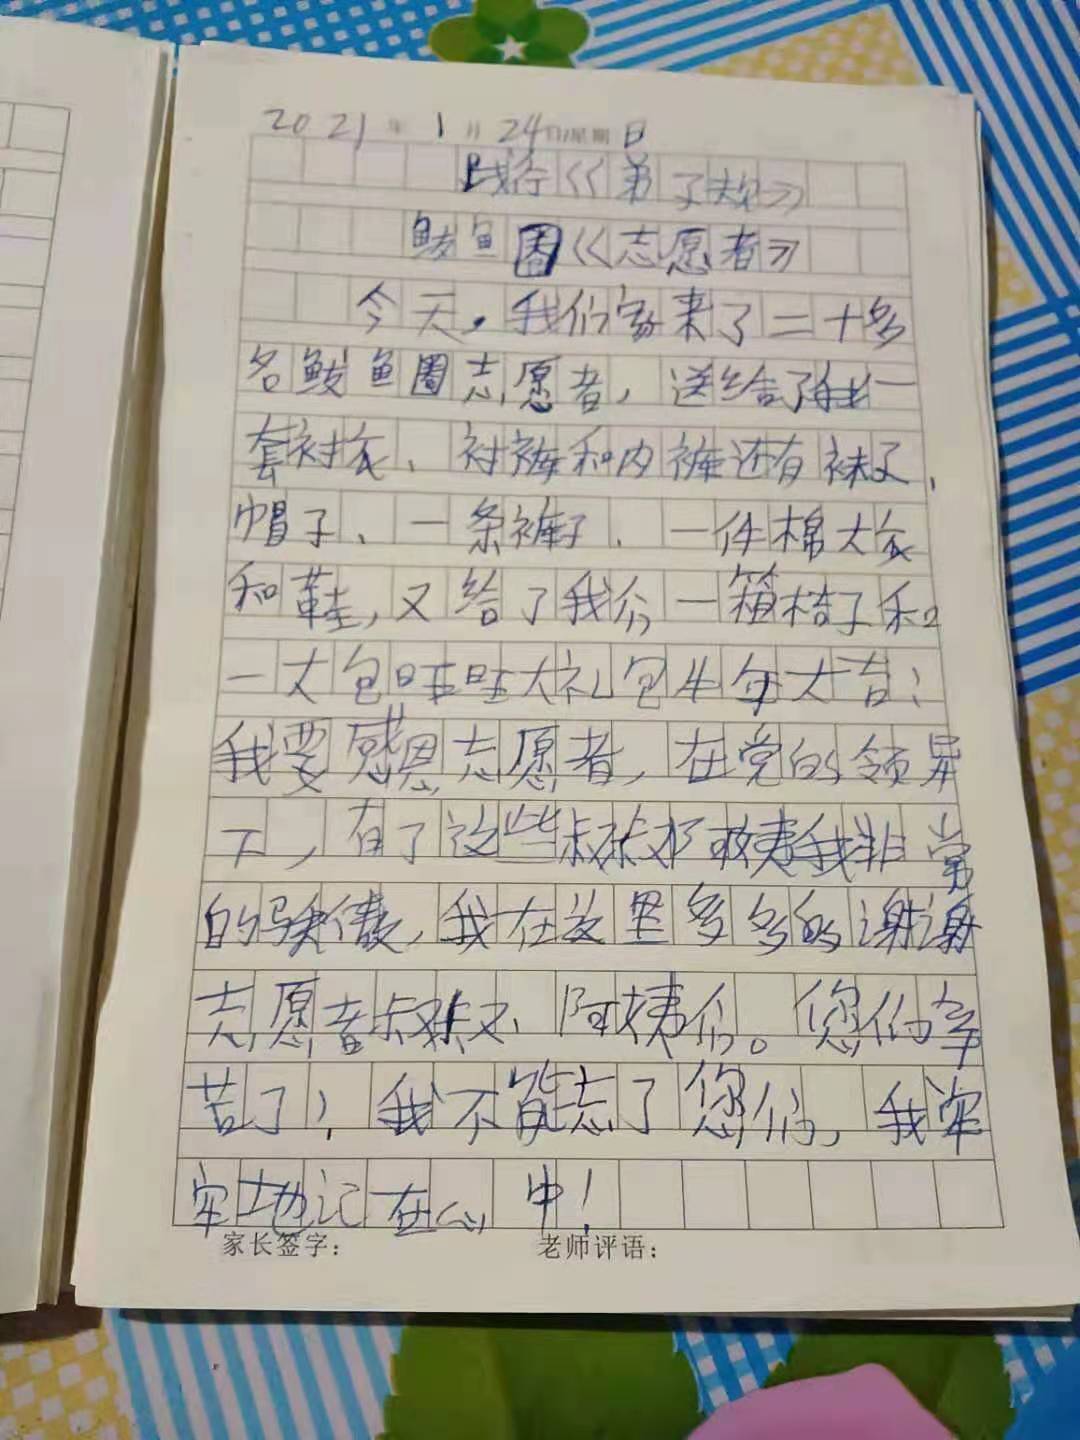 2021年1月24日星期日
践行《弟子规》
鲅鱼圈《志愿者》
今天，我们家来了二十多
名鲅鱼圈志愿者，送给了我一
套衬衣、衬裤和内裤还有袜子、
帽子、一条裤子、一件棉大衣
和鞋，又给了我们一箱桔子和
一大包旺旺大礼包牛年大吉；
我要感恩志愿者，在党的领导
下，有了这些叔叔阿姨我非常
的骄傲，我在这里多多的谢谢
志愿者叔叔、阿姨们。您们辛
苦了，我不能忘了您们，我牢
牢地记在心中！
家长签字： 老师评语：